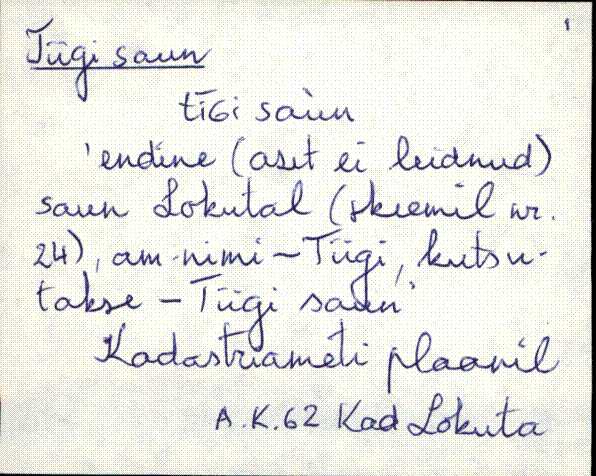 Tiigi saun
tīGi sàun
'endine (aset ei leidnud)
saun Lokutal (skeemil nr.
24), am. nimi – Tiigi, kutsu-
takse – Tiigi saun'
Kadastriameti plaanil
A.K.62 Kad Lokuta